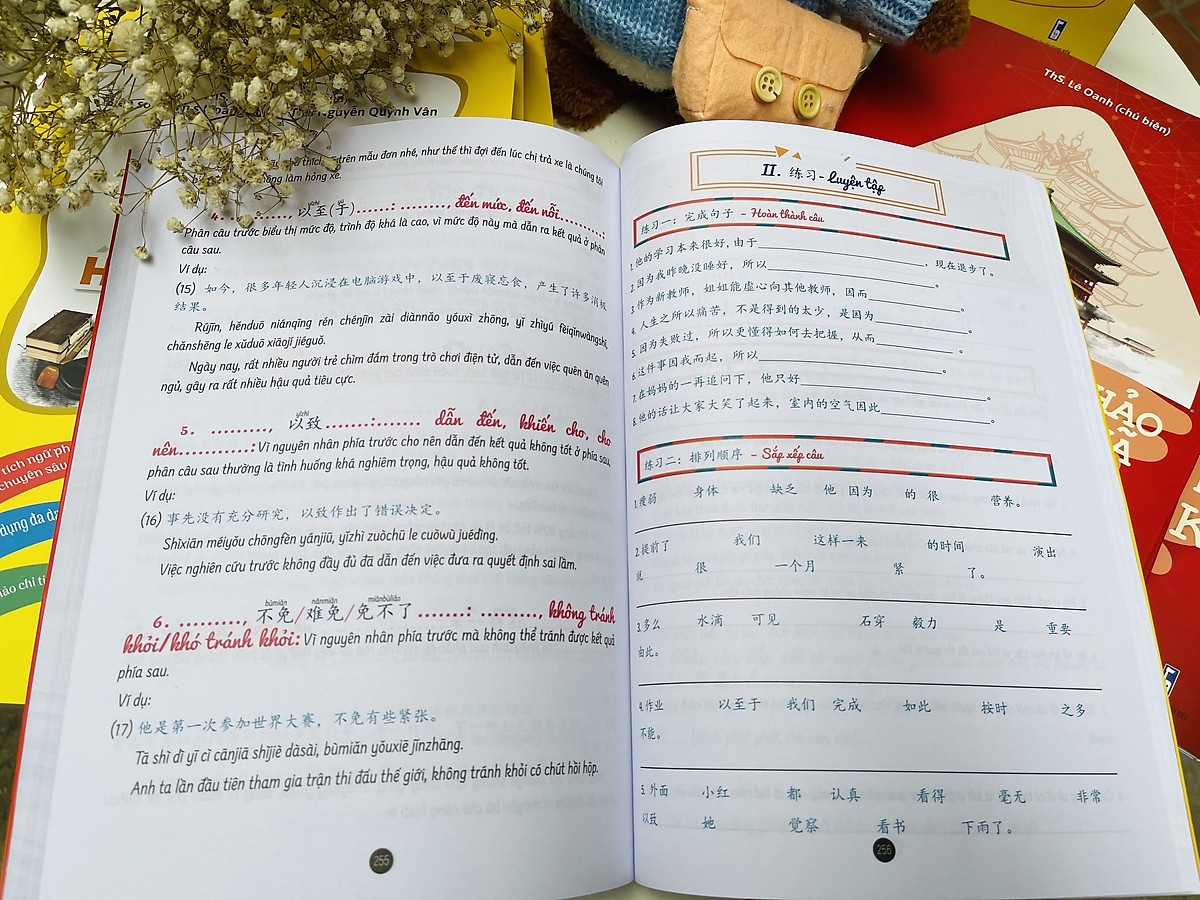 Nguyễn Quỳnh Vân
ThS. Lê Oanh (chủ biên)
trên mẫu đơn nhé, như thế thì đợi đến lúc chị trả xe là chúng tôi
làm hỏng xe.
yǐzhì yú
4. ............, 以至(于)......: ........., đến mức, đến nỗi.........:
Phân câu trước biểu thị mức độ, trình độ khá là cao, vì mức độ này mà dẫn ra kết quả ở phân
câu sau.
Ví dụ:
(15) 如今，很多年轻人沉浸在电脑游戏中，以至于废寝忘食，产生了许多消极
结果。
Rújīn, hěnduō niánqīng rén chénjìn zài diànnǎo yóuxì zhōng, yǐ zhìyú fèiqǐnwàngshí,
chǎnshēng le xǔduō xiāojí jiéguǒ.
Ngày nay, rất nhiều người trẻ chìm đắm trong trò chơi điện tử, dẫn đến việc quên ăn quên
ngủ, gây ra rất nhiều hậu quả tiêu cực.
yǐzhì
5. .........., 以致........:....... dẫn đến, khiến cho, cho
nên............: Vì nguyên nhân phía trước cho nên dẫn đến kết quả không tốt ở phía sau,
phân câu sau thường là tình huống khá nghiêm trọng, hậu quả không tốt.
Ví dụ:
(16) 事先没有充分研究，以致作出了错误决定。
Shìxiān méiyǒu chōngfèn yánjiū, yǐzhì zuòchū le cuòwù juédìng.
Việc nghiên cứu trước không đầy đủ đã dẫn đến việc đưa ra quyết định sai lầm.
bùmiǎn nánmiǎn miǎnbùliǎo
6. .........., 不免/难免/免不了.......: ........., không tránh
khỏi/khó tránh khỏi: Vì nguyên nhân phía trước mà không thể tránh được kết quả
phía sau.
Ví dụ:
(17) 他是第一次参加世界大赛，不免有些紧张。
Tā shì dì yī cì cānjiā shìjiè dàsài, bùmiǎn yǒuxiē jǐnzhāng.
Anh ta lần đầu tiên tham gia trận thi đấu thế giới, không tránh khỏi có chút hồi hộp.
255
II. 练习 - Luyện tập
练习一：完成句子 - Hoàn thành câu
1. 他的学习本来很好，由于____________________，现在退步了。
2. 因为我昨晚没睡好，所以____________________。
3. 作为新教师，姐姐能虚心向其他教师，因而____________________。
4. 人生之所以痛苦，不是得到的太少，是因为____________________。
5. 因为失败过，所以更懂得如何去把握，从而____________________。
6. 这件事因我而起，所以____________________。
7. 在妈妈的一再追问下，他只好____________________。
8. 他的话让大家大笑了起来，室内的空气因此____________________。
练习二：排列顺序 - Sắp xếp câu
1. 瘦弱 身体 缺乏 他 因为 的 很 营养。
2. 提前了 我们 这样一来 的时间 演出
就 很 一个月 紧 了。
3. 多么 水滴 可见 石穿 毅力 是 重要
由此。
4. 作业 以至于 我们 完成 如此 按时 之多
不能。
5. 外面 小红 都 认真 看得 毫无 非常
以致 她 觉察 看书 下雨了。
256